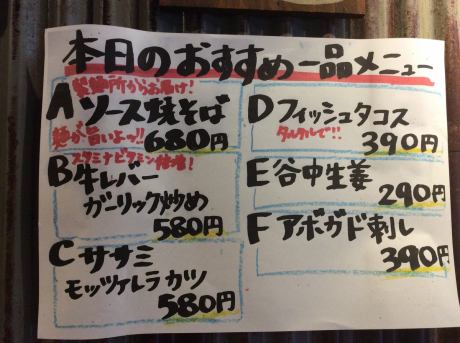 本日のおすすめ一品メニュー
製麺所からお届け!
A ソース焼そば
麺が旨いよッ!! 680円
スタミナビタミン倍増!
B 牛レバー
ガーリック炒め
580円
C ササミ
モッツァレラカツ
580円
D フィッシュタコス
タルタルで!! 390円
E 谷中生姜
290円
F アボガド刺し
390円